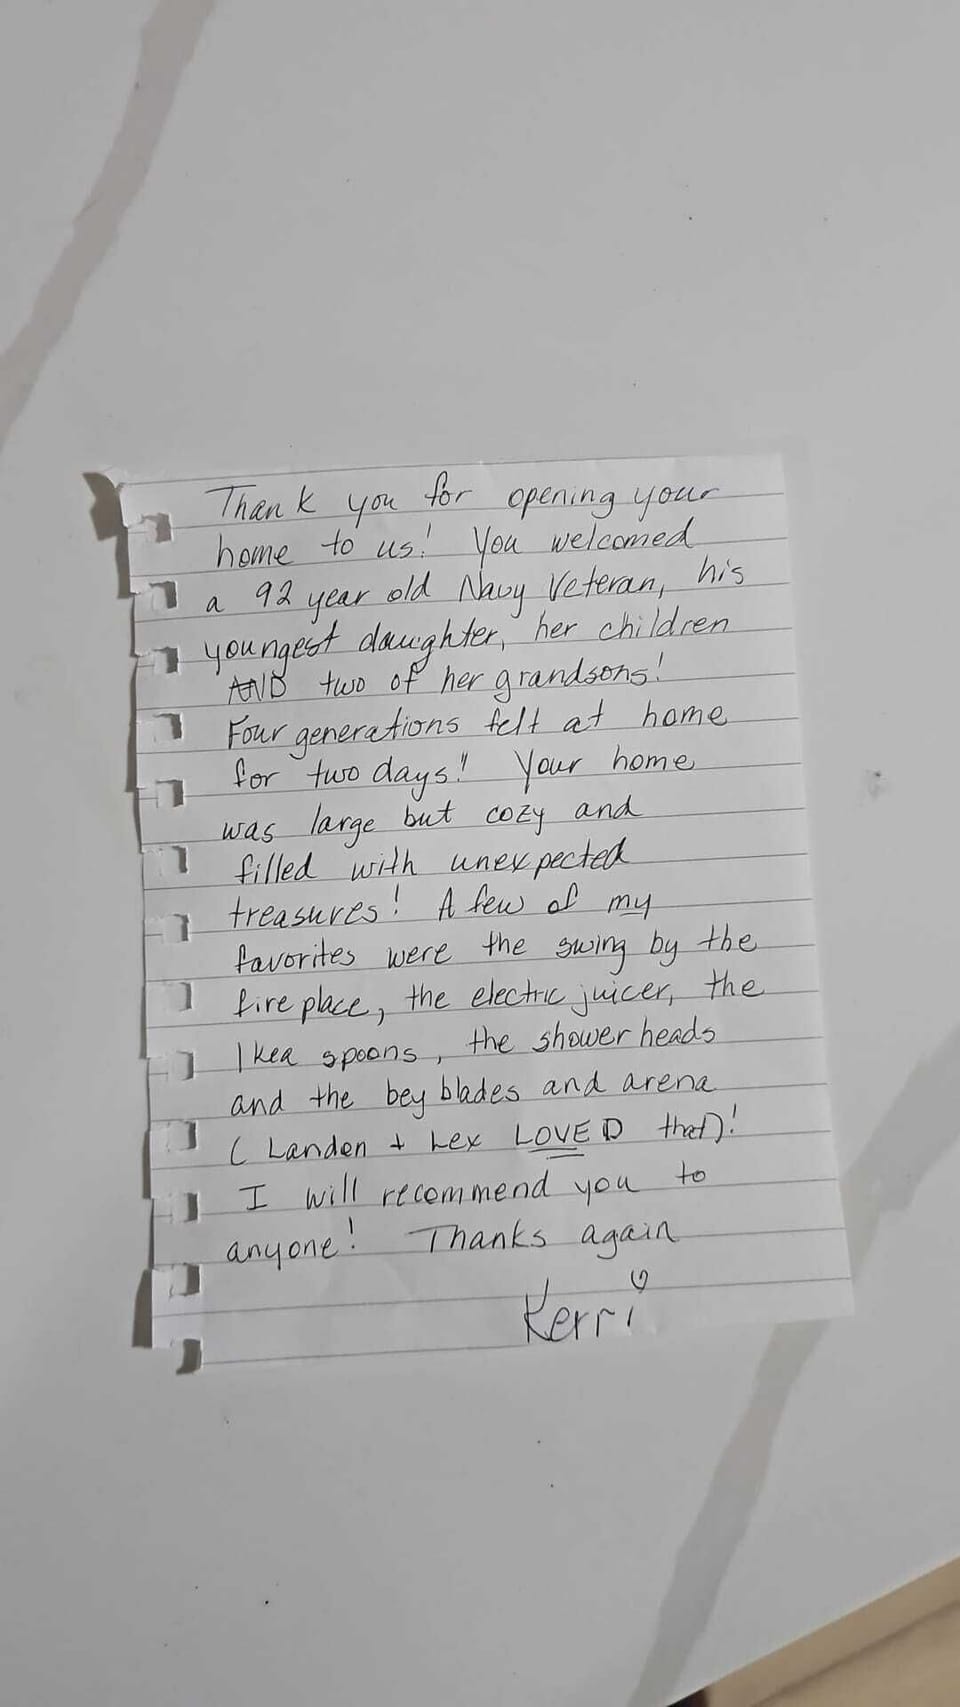 Thank you for opening your
home to us! You welcomed
a 92 year old Navy Veteran, his
youngest daughter, her children
AND two of her grandsons!
Four generations felt at home
for two days!! Your home
was large but cozy and
filled with unexpected
treasures! A few of my
favorites were the swing by the
fire place, the electric juicer, the
Ikea spoons, the shower heads
and the bey blades and arena
(Landen + Lex LOVED that)!
I will recommend you to
anyone! Thanks again
Kerri